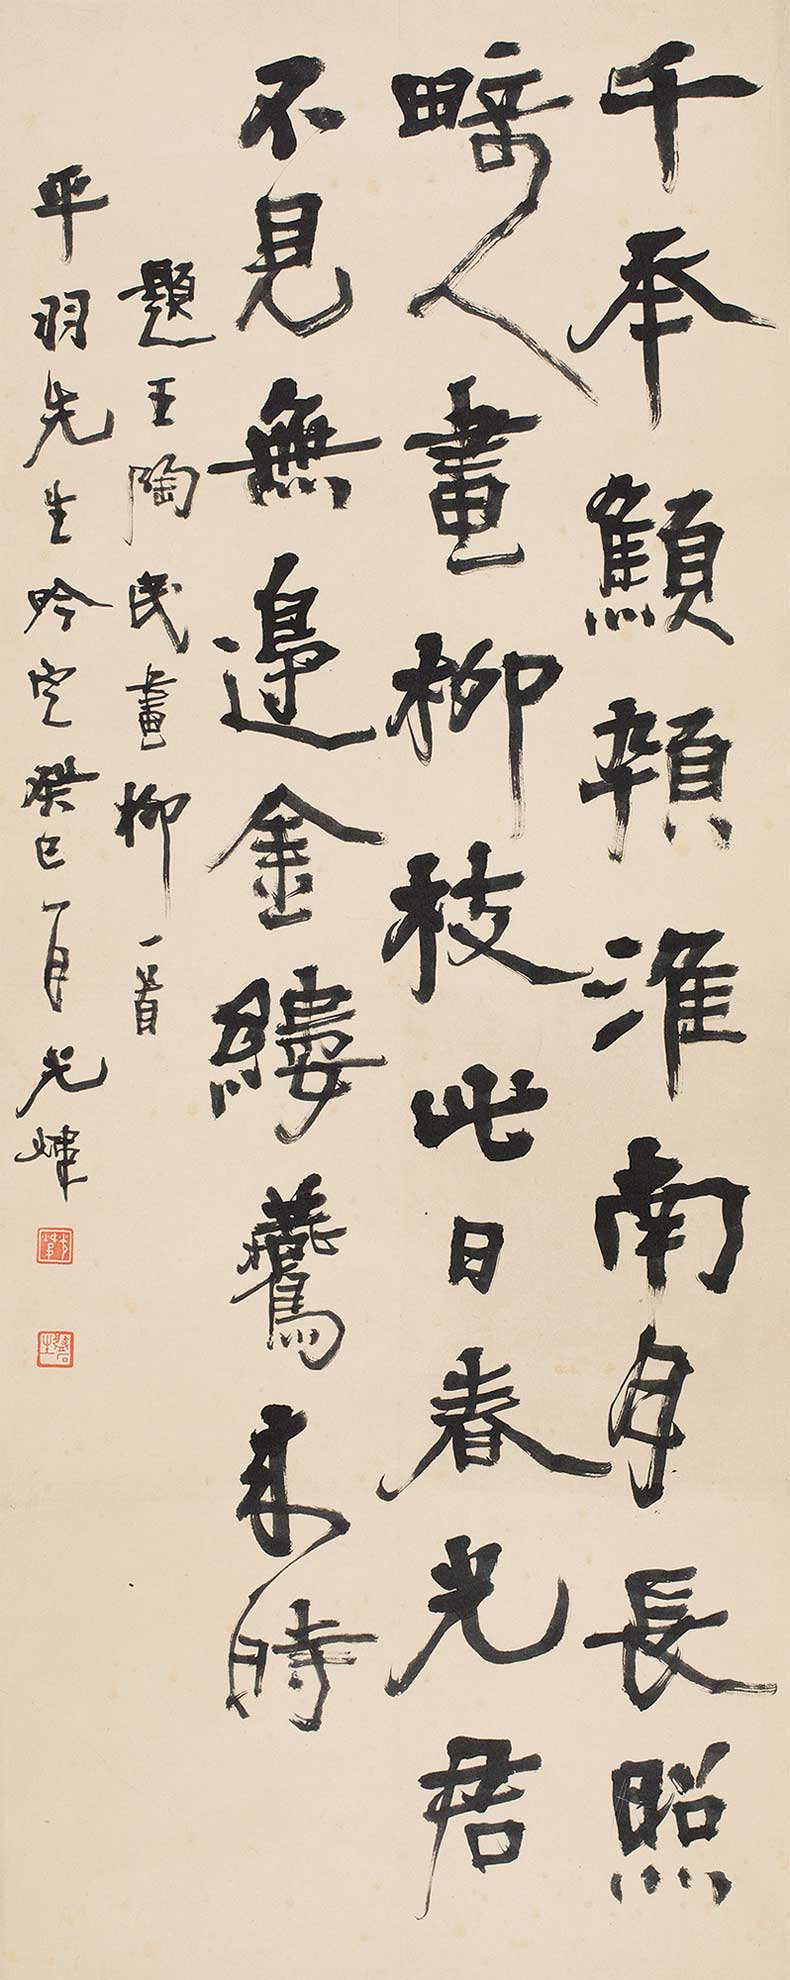 千年顦顇淮南月長照
畸人畫柳枝此日春光君
不見無邊金縷鷰來時
題王陶民畫柳一首
平羽先生吟定癸巳一月光煒